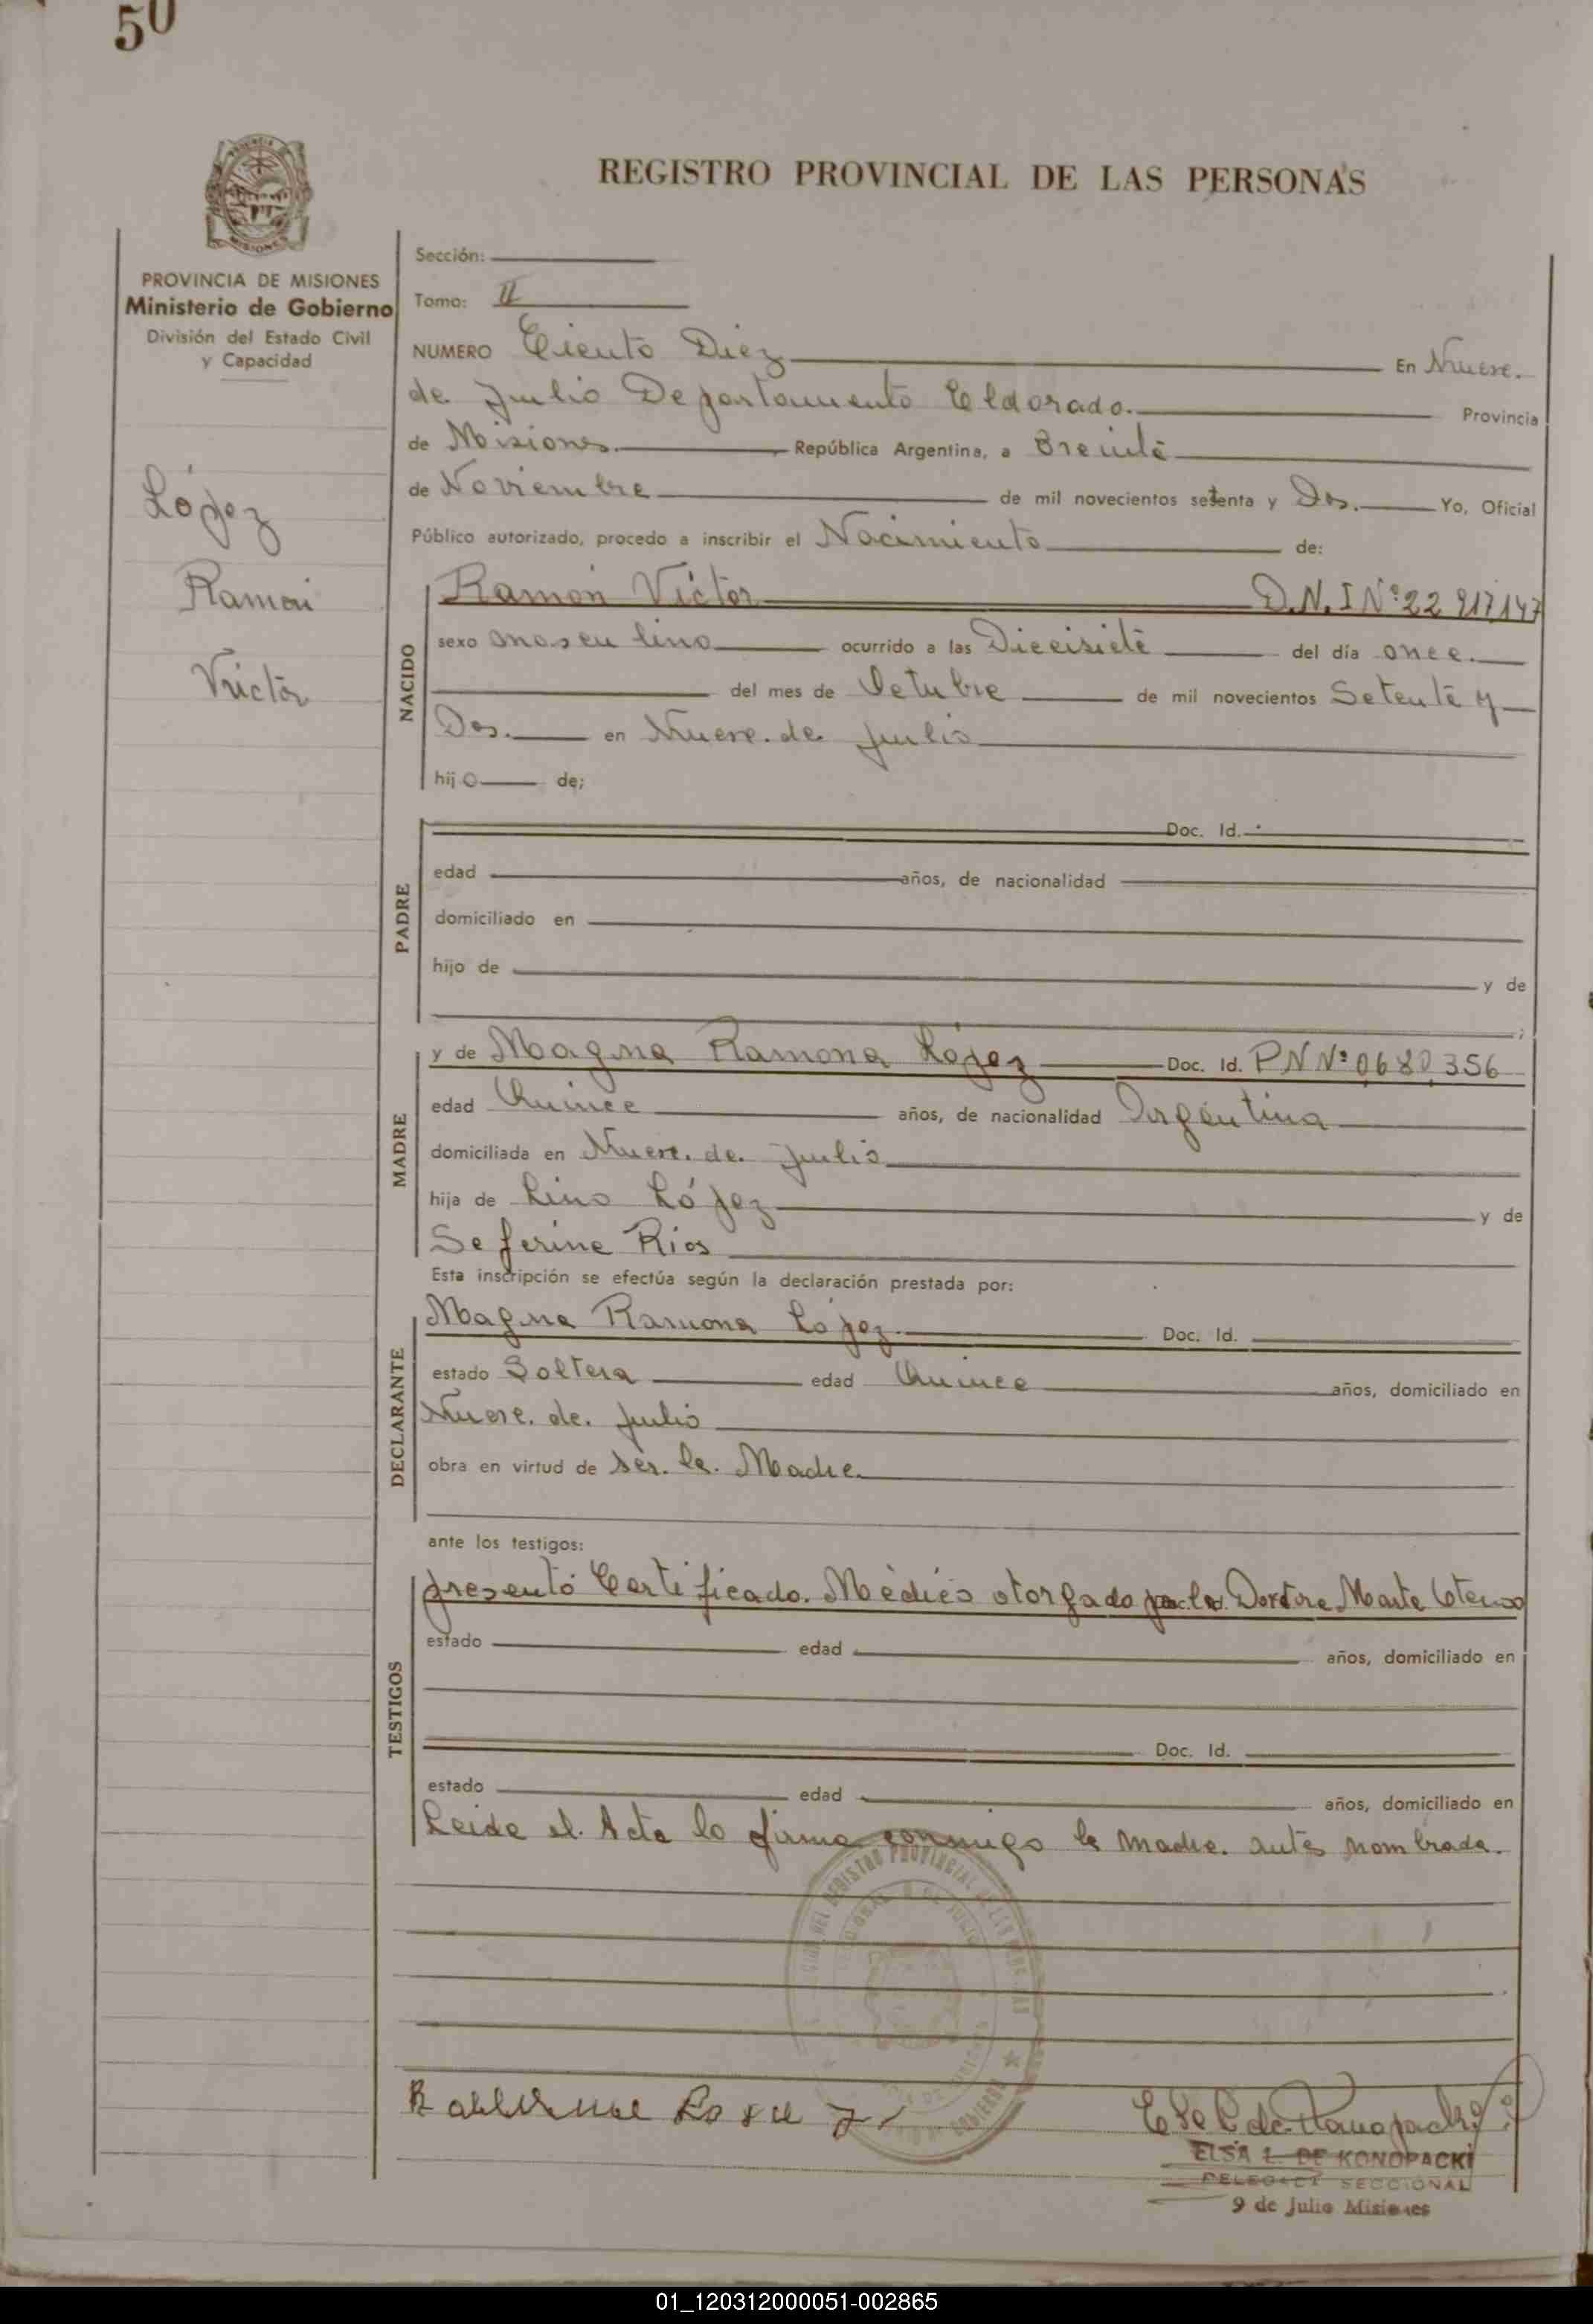 50
REGISTRO PROVINCIAL DE LAS PERSONAS
PROVINCIA DE MISIONES
Ministerio de Gobierno
División del Estado Civil
y Capacidad
López
Ramón
Víctor
Sección:
Tomo: II
NUMERO Ciento Diez En Nueve.
de Julio Departamento Eldorado. Provincia
de Misiones. República Argentina, a Treinta
de Noviembre de mil novecientos setenta y Dos. Yo, Oficial
Público autorizado, procedo a inscribir el Nacimiento de:
NACIDO
Ramón Víctor D.N.I Nº 22.917,147
sexo masculino ocurrido a las Diecisiete del día once.
del mes de Octubre de mil novecientos Setenta y
Dos. en Nueve. de Julio
hijo de;
PADRE
Doc. Id.
edad años, de nacionalidad
domiciliado en
hijo de y de
MADRE
y de Magna Ramona López Doc. Id. PN Nº 0680356
edad Quince años, de nacionalidad Argentina
domiciliada en Nueve. de. Julio
hija de Lino López y de
Seferina Rios
Esta inscripción se efectúa según la declaración prestada por:
DECLARANTE
Magna Ramona López. Doc. Id.
estado Soltera edad Quince años, domiciliado en
Nueve. de. Julio
obra en virtud de ser. la. Madre.
ante los testigos:
TESTIGOS
presentó Certificado. Médico otorgado por la Doctora Marta
estado edad años, domiciliado en
Doc. Id.
estado edad años, domiciliado en
Leida el. Acta lo firma conmigo la madre. antes nombrada.
ELSA L. DE KONOPACKI
DELEGADA SECCIONAL
9 de Julio Misiones
01_120312000051-002865